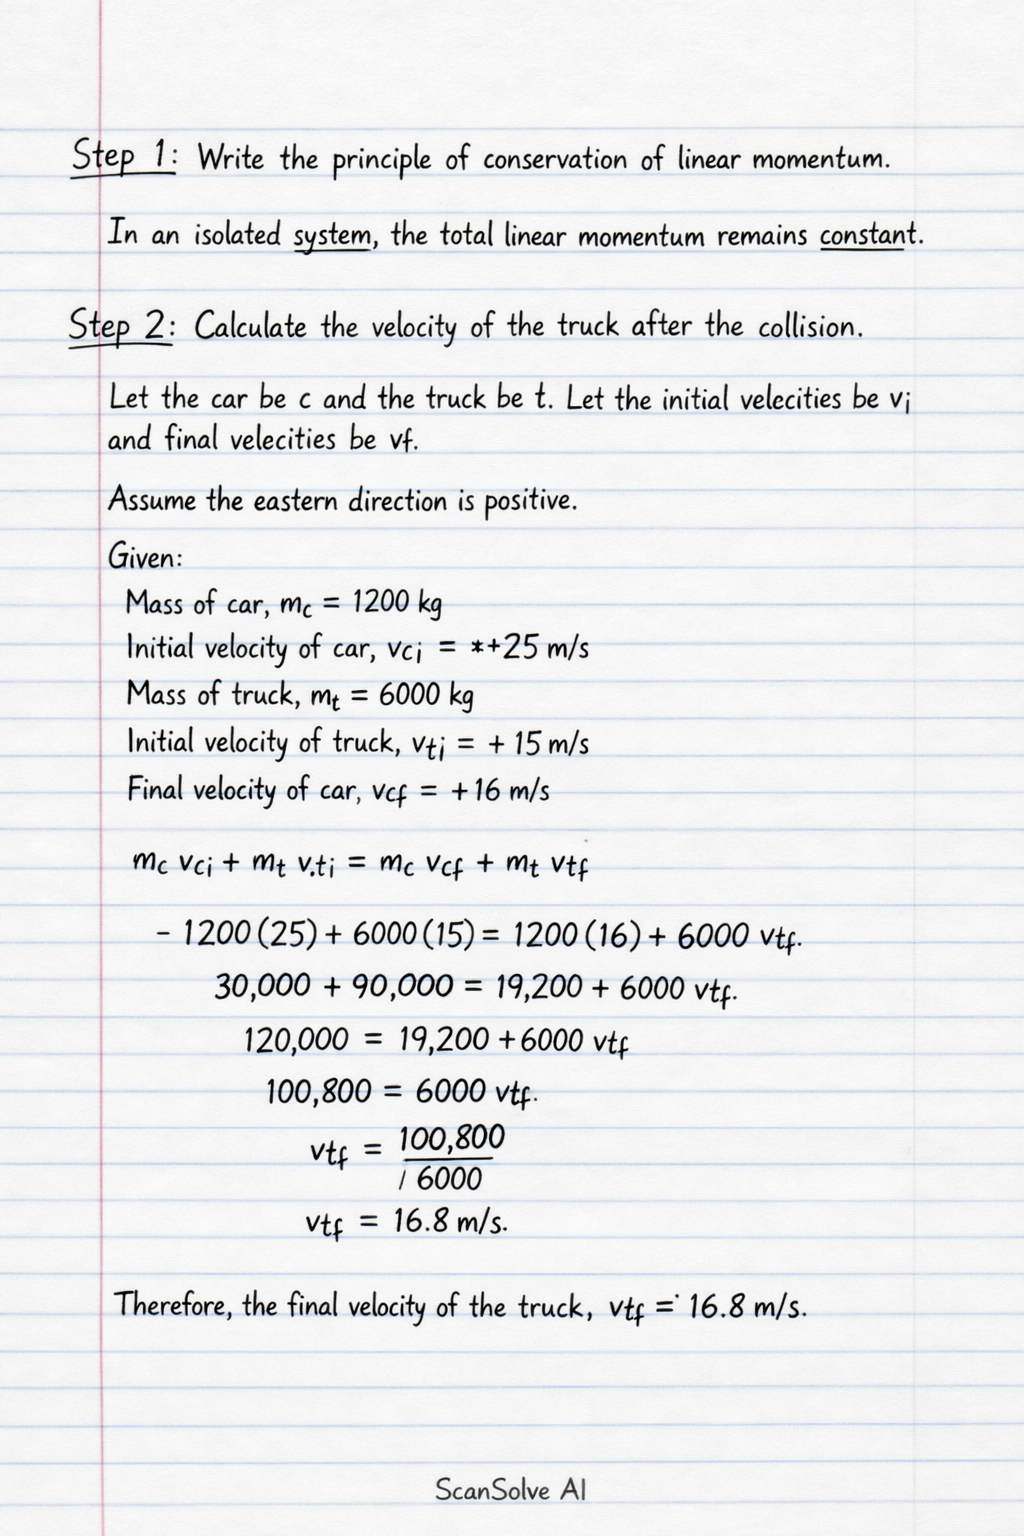 Step 1: Write the principle of conservation of linear momentum.
In an isolated system, the total linear momentum remains constant.
Step 2: Calculate the velocity of the truck after the collision.
Let the car be c and the truck be t. Let the initial velecities be vi
and final velecities be vf.
Assume the eastern direction is positive.
Given:
Mass of car, mc = 1200 kg
Initial velocity of car, vci = *+25 m/s
Mass of truck, mt = 6000 kg
Initial velocity of truck, vti = + 15 m/s
Final velocity of car, vcf = +16 m/s
mc vci + mt v.ti = mc vcf + mt vtf
- 1200 (25) + 6000 (15) = 1200 (16) + 6000 vtf.
30,000 + 90,000 = 19,200 + 6000 vtf.
120,000 = 19,200 +6000 vtf
100,800 = 6000 vtf.
vtf = 100,800
/ 6000
vtf = 16.8 m/s.
Therefore, the final velocity of the truck, vtf = 16.8 m/s.
ScanSolve AI